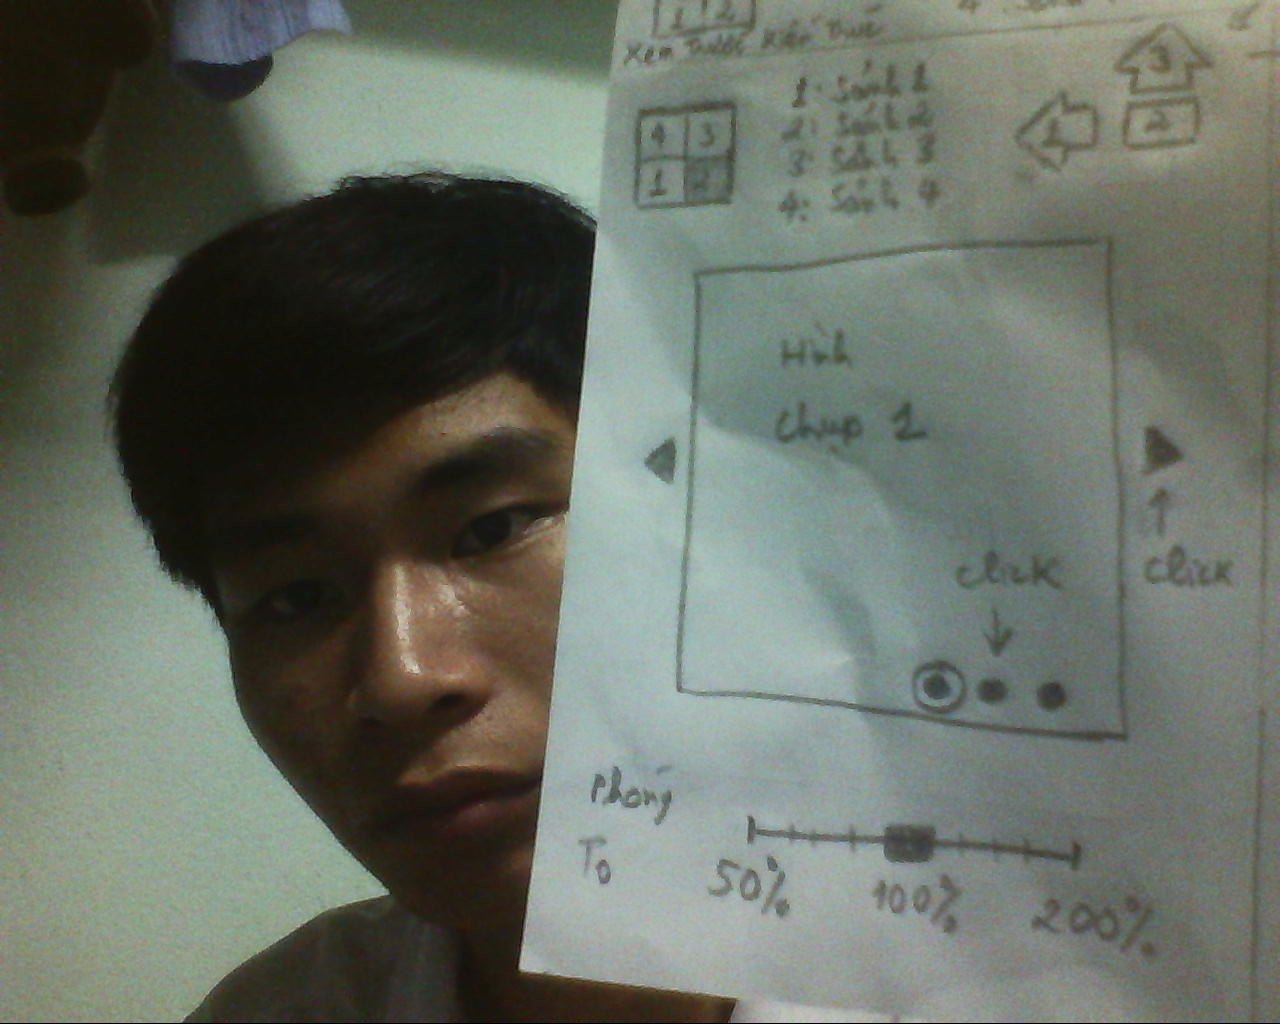 1 2
Xem Trước Kiến Thức
1: Sảnh 1
2: Sảnh 2
3: Sảnh 3
4: Sảnh 4
4 3
1 2
3
1 2
Hình
Chụp 1
click
click
Phóng
To
50% 100% 200%